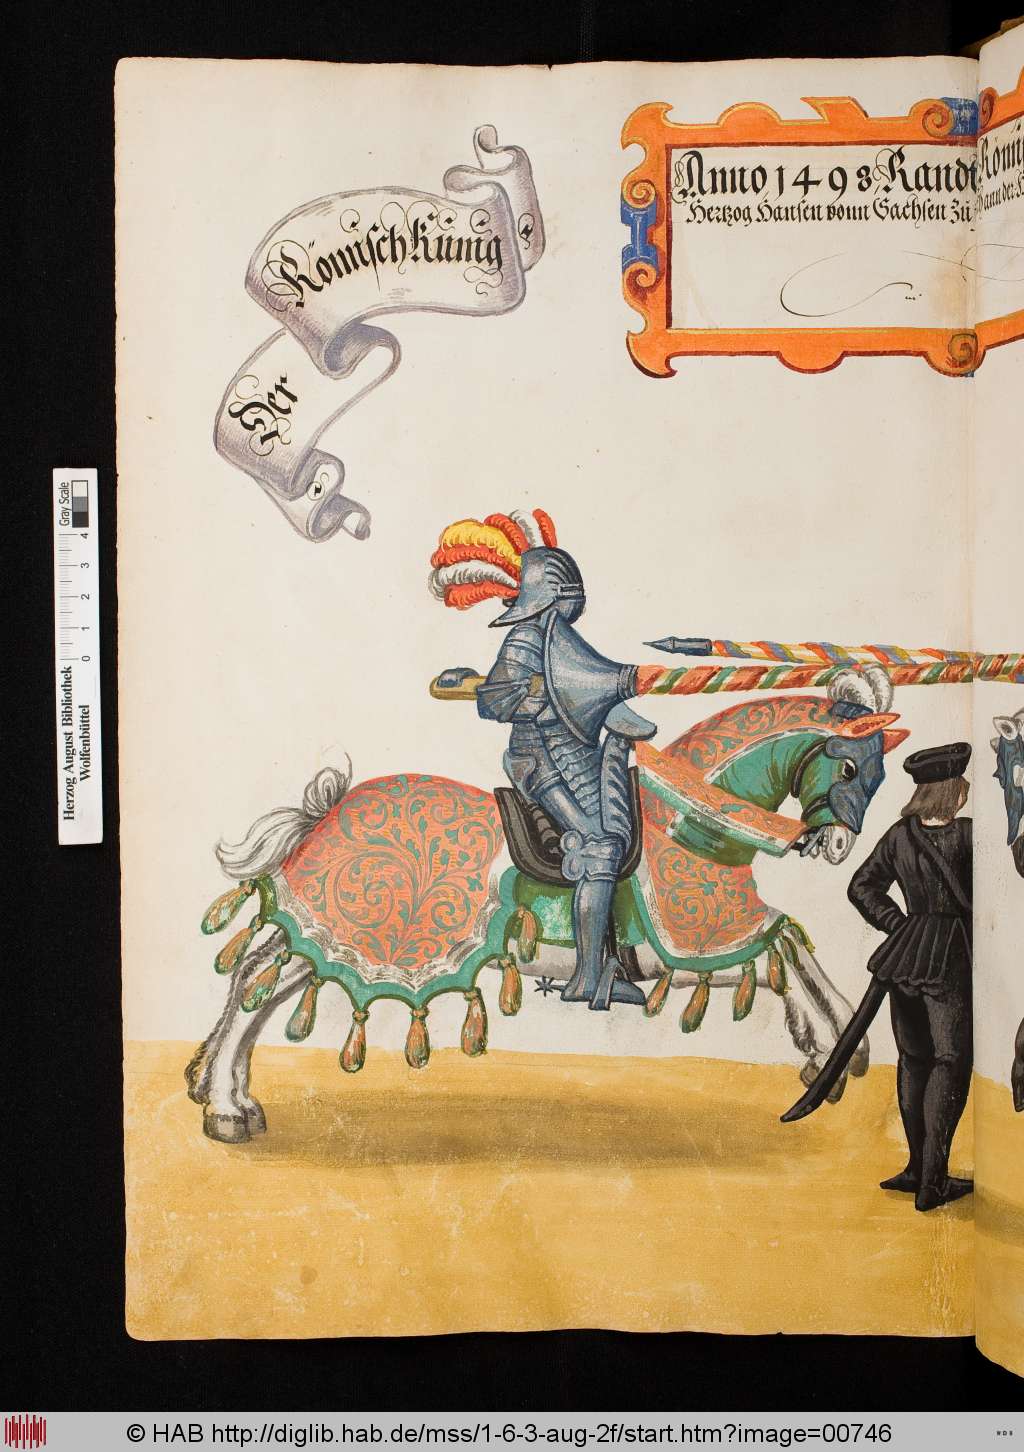 Der
Römisch Künig
Anno 1498 Randt
Hertzog Hansen vonn Sachsen Zu
Römi
Herzog August Bibliothek
Wolfenbüttel
0 1 2 3 4
Gray Scale
© HAB http://diglib.hab.de/mss/1-6-3-aug-2f/start.htm?image=00746